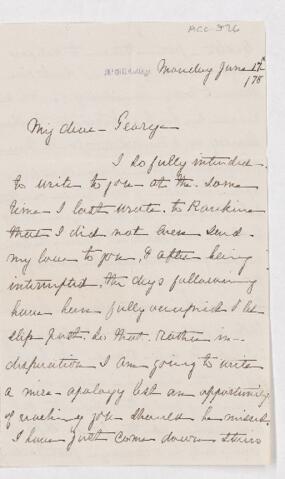 ACC 926
Monday June 17th
/78
My dear George
I so fully intended
to write to you at the same
time I last wrote to Rankine
that I did not even send
my love to you, & after being
interrupted, the days following
have been fully occupied I let
slip past. So that rather in
desperation I am going to write
a mere apology lest an opportunity
of reaching you should be missed.
I have just come down stairs